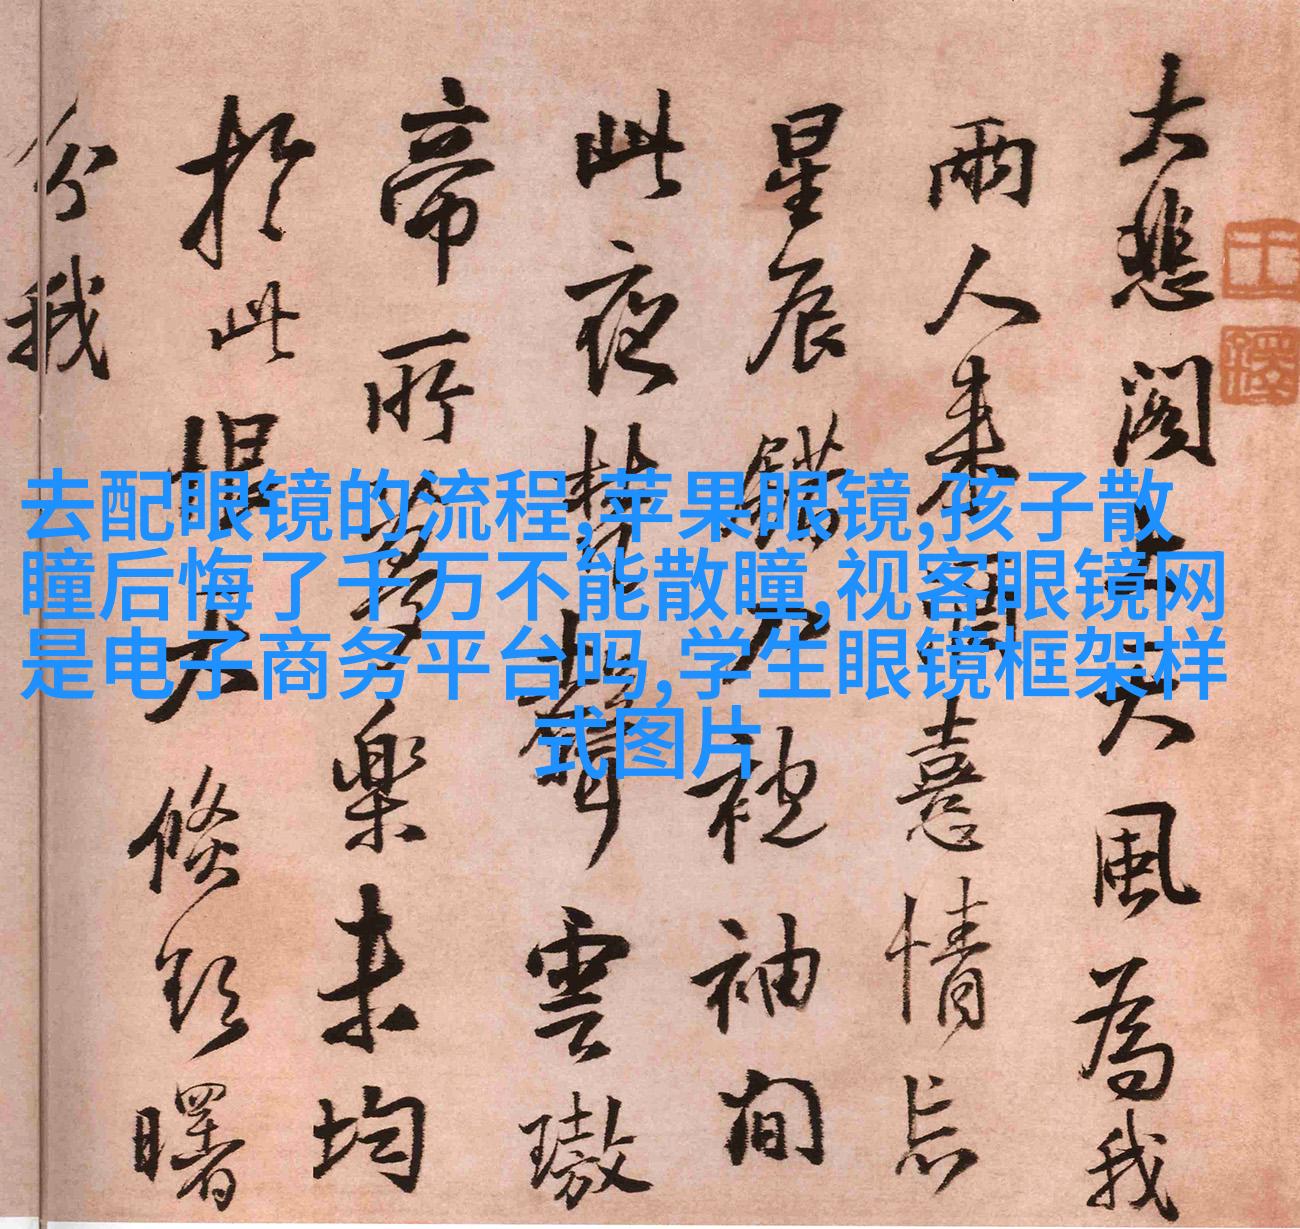 去配眼镜的流程,苹果眼镜,孩子散
瞳后悔了千万不能散瞳,视客眼镜网
是电子商务平台吗,学生眼镜框架样
式图片
大悲閣天風為我
兩人来憙情忘
星辰錯袖間
此夜梵聲雲璈
帝所多樂未均
於此倏欲曙
分我